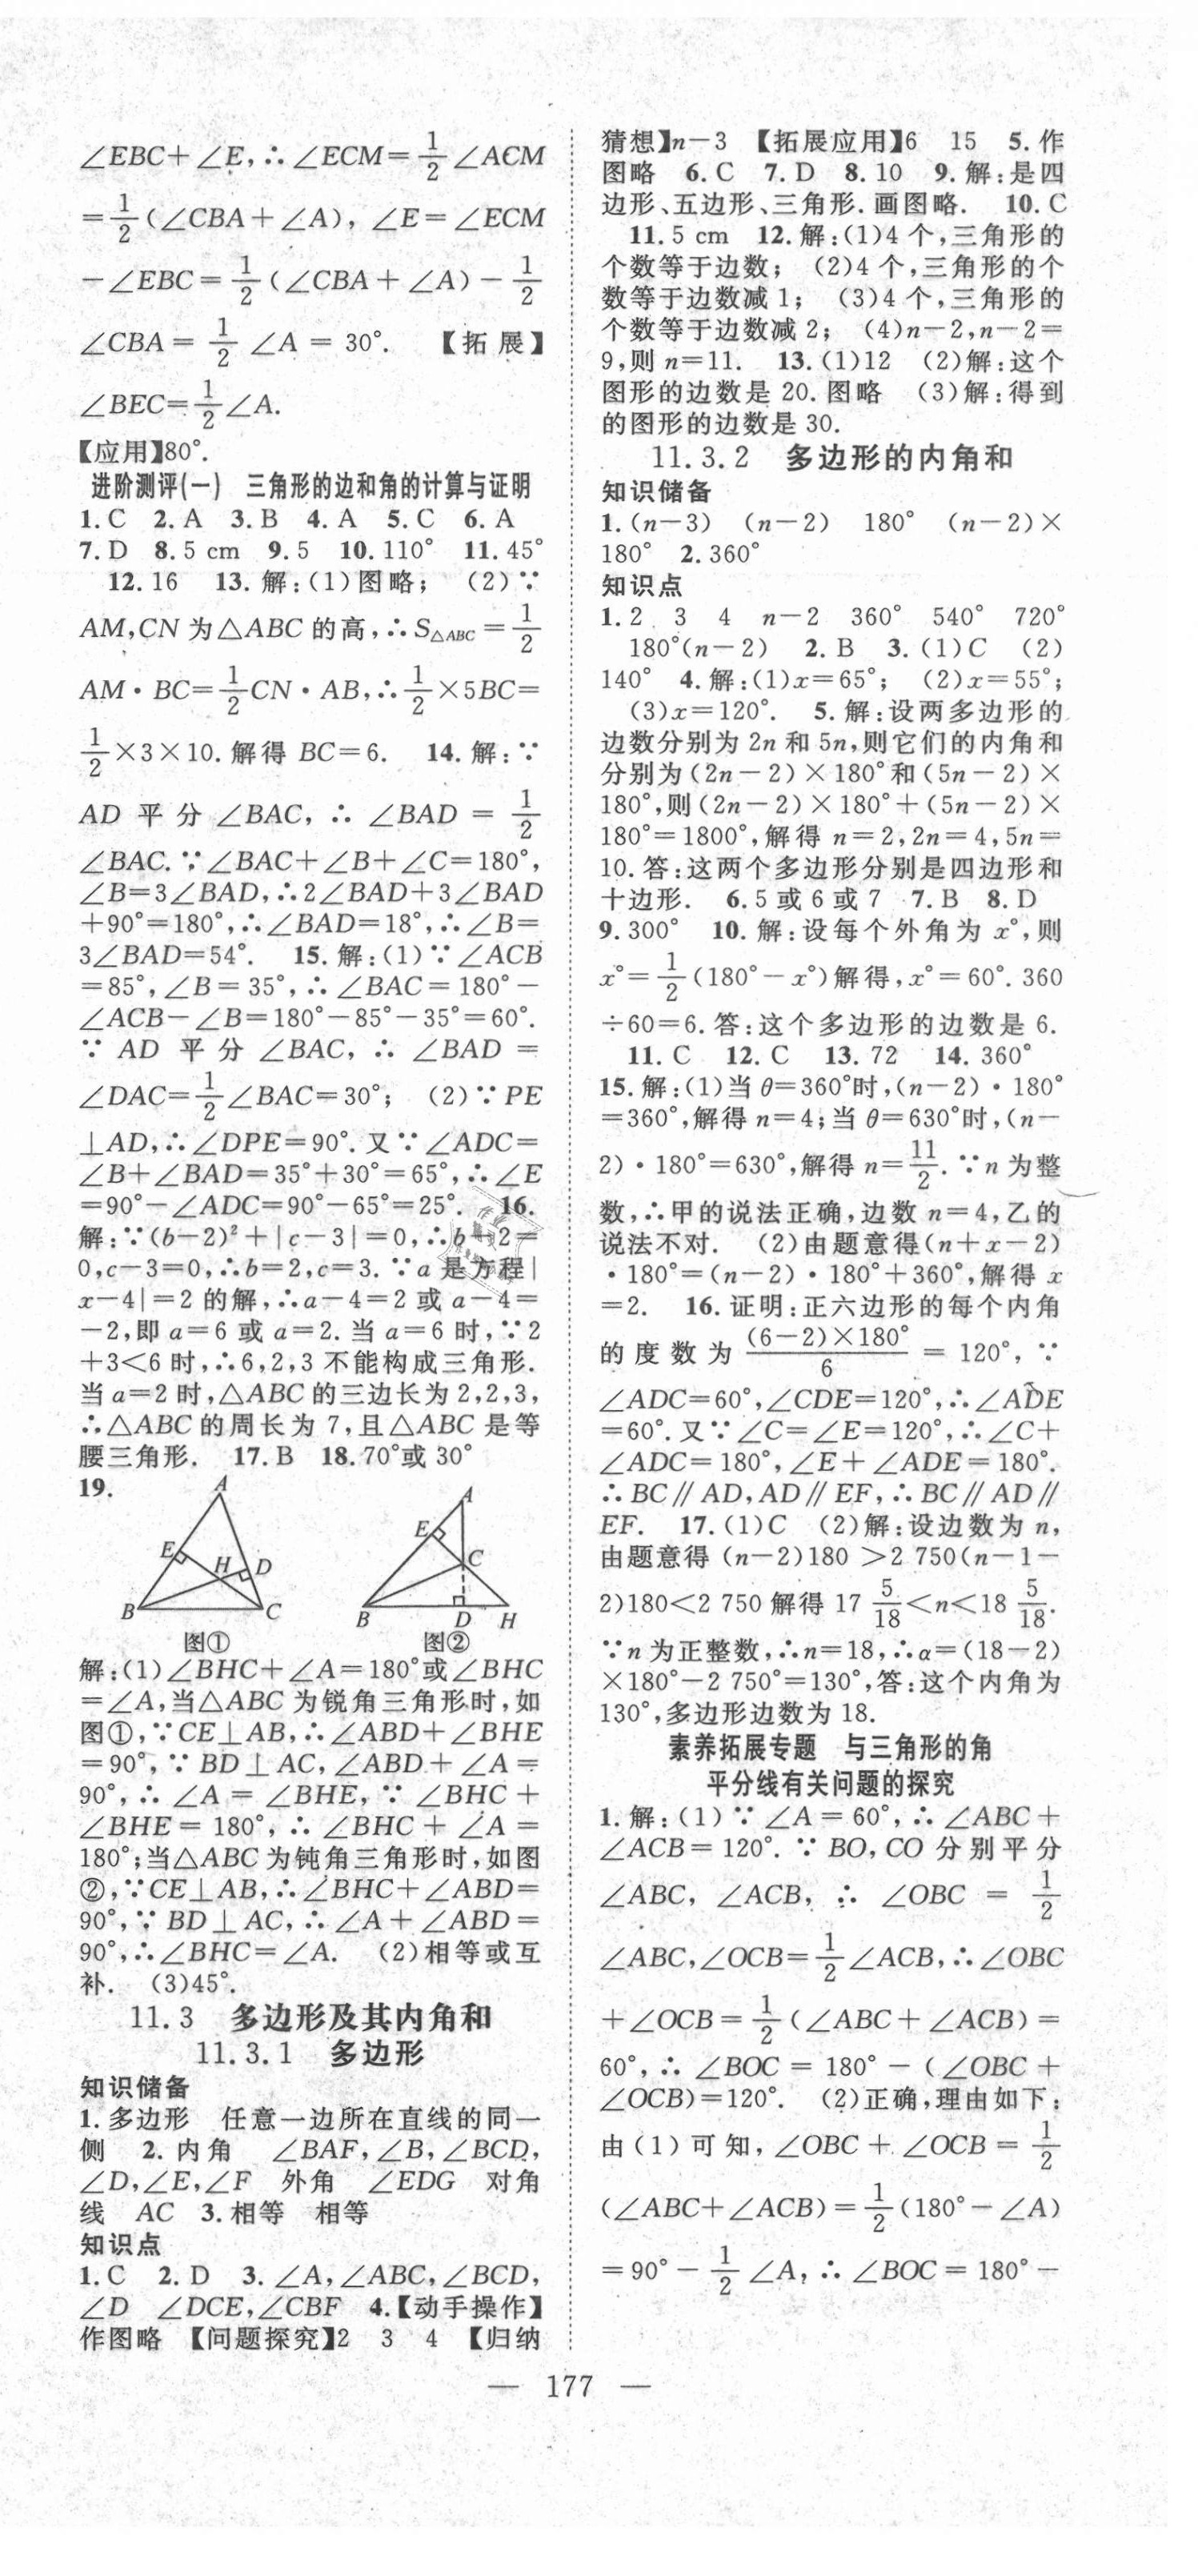 ∠EBC+∠E,∴∠ECM=1/2∠ACM
=1/2(∠CBA+∠A),∠E=∠ECM
-∠EBC=1/2(∠CBA+∠A)-1/2
∠CBA=1/2∠A=30°. 【拓展】
∠BEC=1/2∠A.
【应用】80°.
进阶测评(一) 三角形的边和角的计算与证明
1.C 2.A 3.B 4.A 5.C 6.A
7.D 8.5 cm 9.5 10.110° 11.45°
12.16 13.解:(1)图略; (2)∵
AM,CN为△ABC的高,∴S△ABC=1/2
AM·BC=1/2CN·AB,∴1/2×5BC=
1/2×3×10.解得BC=6. 14.解:∵
AD平分∠BAC,∴∠BAD=1/2
∠BAC.∵∠BAC+∠B+∠C=180°,
∠B=3∠BAD,∴2∠BAD+3∠BAD
+90°=180°,∴∠BAD=18°,∴∠B=
3∠BAD=54°. 15.解:(1)∵∠ACB
=85°,∠B=35°,∴∠BAC=180°-
∠ACB-∠B=180°-85°-35°=60°.
∵AD平分∠BAC,∴∠BAD=
∠DAC=1/2∠BAC=30°; (2)∵PE
⊥AD,∴∠DPE=90°.又∵∠ADC=
∠B+∠BAD=35°+30°=65°,∴∠E
=90°-∠ADC=90°-65°=25°. 16.
解:∵(b-2)²+|c-3|=0,∴b-2=
0,c-3=0,∴b=2,c=3.∵a是方程|
x-4|=2的解,∴a-4=2或a-4=
-2,即a=6或a=2.当a=6时,∵2
+3<6时,∴6,2,3不能构成三角形.
当a=2时,△ABC的三边长为2,2,3,
∴△ABC的周长为7,且△ABC是等
腰三角形. 17.B 18.70°或30°
19.
A E H D B C
图①
A E C B D H
图②
解:(1)∠BHC+∠A=180°或∠BHC
=∠A,当△ABC为锐角三角形时,如
图①,∵CE⊥AB,∴∠ABD+∠BHE
=90°,∵BD⊥AC,∠ABD+∠A=
90°,∴∠A=∠BHE,∵∠BHC+
∠BHE=180°,∴∠BHC+∠A=
180°;当△ABC为钝角三角形时,如图
②,∵CE⊥AB,∴∠BHC+∠ABD=
90°,∵BD⊥AC,∴∠A+∠ABD=
90°,∴∠BHC=∠A. (2)相等或互
补. (3)45°.
11.3 多边形及其内角和
11.3.1 多边形
知识储备
1.多边形 任意一边所在直线的同一
侧 2.内角 ∠BAF,∠B,∠BCD,
∠D,∠E,∠F 外角 ∠EDG 对角
线 AC 3.相等 相等
知识点
1.C 2.D 3.∠A,∠ABC,∠BCD,
∠D ∠DCE,∠CBF 4.【动手操作】
作图略 【问题探究】2 3 4 【归纳
猜想】n-3 【拓展应用】6 15 5.作
图略 6.C 7.D 8.10 9.解:是四
边形、五边形、三角形.画图略. 10.C
11.5 cm 12.解:(1)4个,三角形的
个数等于边数; (2)4个,三角形的个
数等于边数减1; (3)4个,三角形的
个数等于边数减2; (4)n-2,n-2=
9,则n=11. 13.(1)12 (2)解:这个
图形的边数是20.图略 (3)解:得到
的图形的边数是30.
11.3.2 多边形的内角和
知识储备
1.(n-3) (n-2) 180° (n-2)×
180° 2.360°
知识点
1.2 3 4 n-2 360° 540° 720°
180°(n-2) 2.B 3.(1)C (2)
140° 4.解:(1)x=65°; (2)x=55°;
(3)x=120°. 5.解:设两多边形的
边数分别为2n和5n,则它们的内角和
分别为(2n-2)×180°和(5n-2)×
180°,则(2n-2)×180°+(5n-2)×
180°=1800°,解得n=2,2n=4,5n=
10.答:这两个多边形分别是四边形和
十边形. 6.5或6或7 7.B 8.D
9.300° 10.解:设每个外角为x°,则
x°=1/2(180°-x°)解得,x°=60°.360
÷60=6.答:这个多边形的边数是6.
11.C 12.C 13.72 14.360°
15.解:(1)当θ=360°时,(n-2)·180°
=360°,解得n=4;当θ=630°时,(n-
2)·180°=630°,解得n=11/2.∵n为整
数,∴甲的说法正确,边数n=4,乙的
说法不对. (2)由题意得(n+x-2)
·180°=(n-2)·180°+360°,解得x
=2. 16.证明:正六边形的每个内角
的度数为(6-2)×180°/6=120°,∵
∠ADC=60°,∠CDE=120°,∴∠ADE
=60°.又∵∠C=∠E=120°,∴∠C+
∠ADC=180°,∠E+∠ADE=180°.
∴BC∥AD,AD∥EF,∴BC∥AD∥
EF. 17.(1)C (2)解:设边数为n,
由题意得(n-2)180>2 750(n-1-
2)180<2 750解得17 5/18<n<18 5/18.
∵n为正整数,∴n=18,∴α=(18-2)
×180°-2 750°=130°,答:这个内角为
130°,多边形边数为18.
素养拓展专题 与三角形的角
平分线有关问题的探究
1.解:(1)∵∠A=60°,∴∠ABC+
∠ACB=120°.∵BO,CO分别平分
∠ABC,∠ACB,∴∠OBC=1/2
∠ABC,∠OCB=1/2∠ACB,∴∠OBC
+∠OCB=1/2(∠ABC+∠ACB)=
60°,∴∠BOC=180°-(∠OBC+
∠OCB)=120°. (2)正确,理由如下:
由(1)可知,∠OBC+∠OCB=1/2
(∠ABC+∠ACB)=1/2(180°-∠A)
=90°-1/2∠A,∴∠BOC=180°-
— 177 —